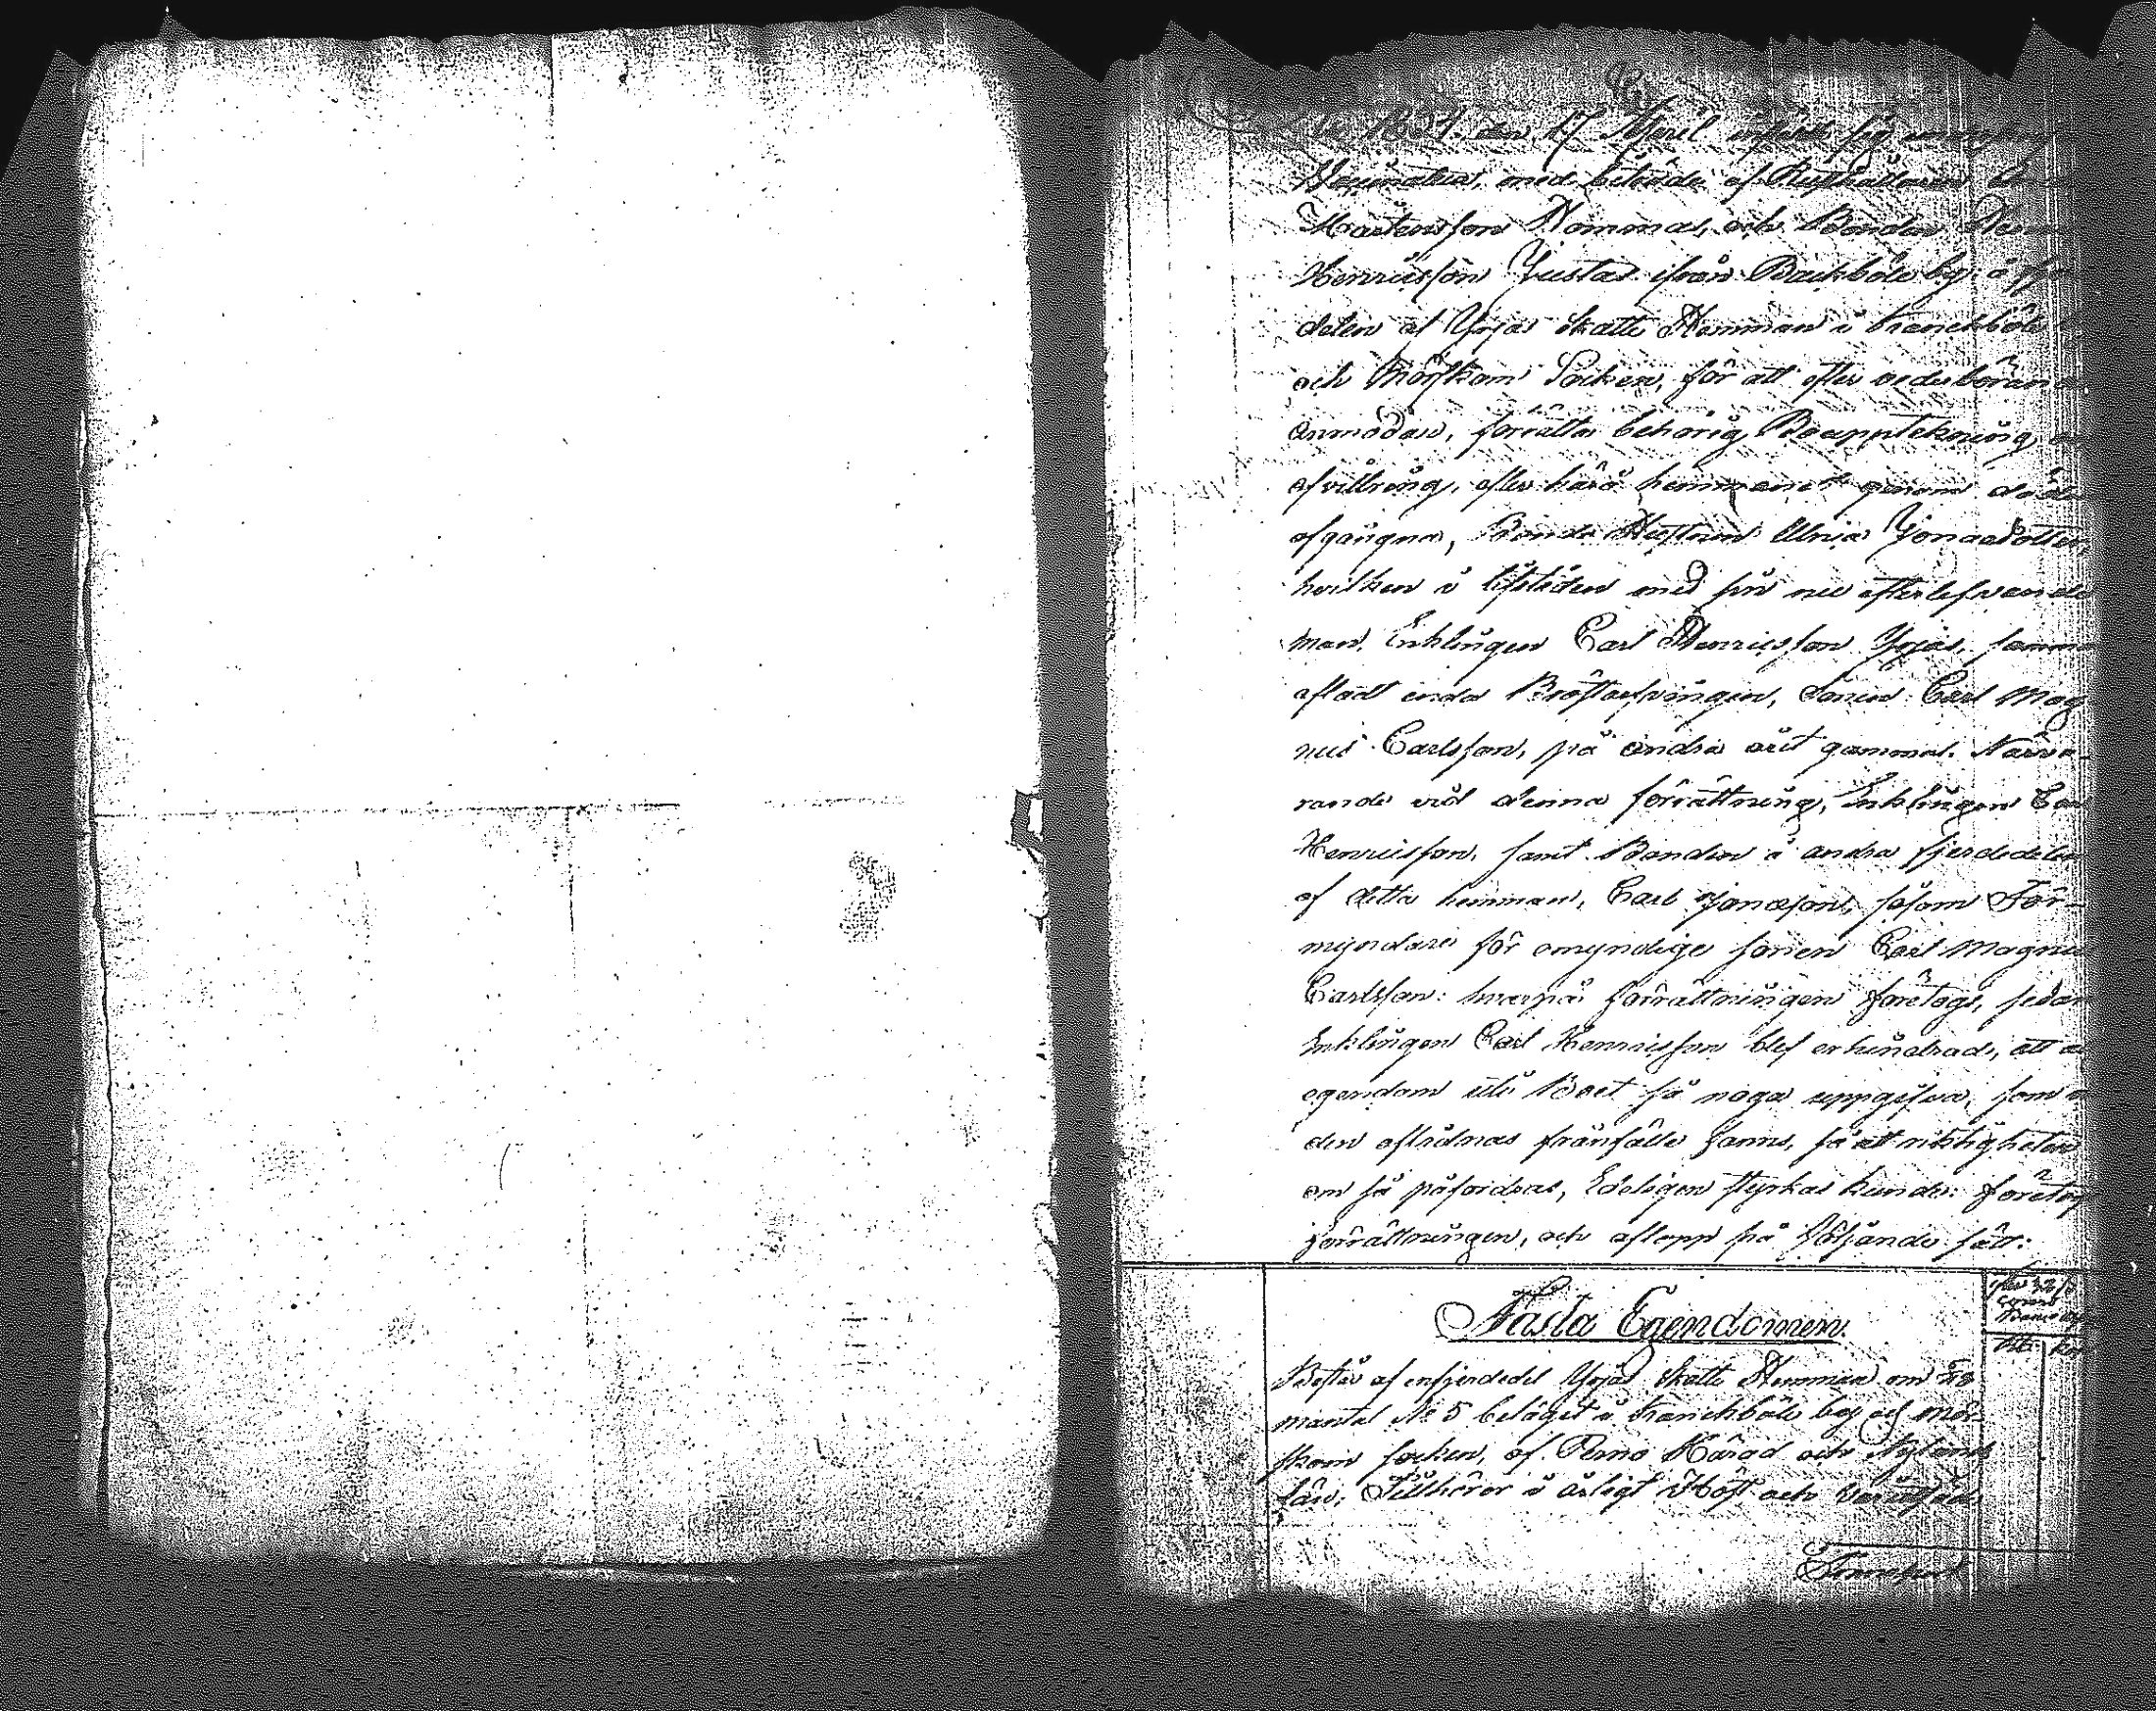 den 17 April infant sig
med biträde af Rusthållaren
Mårtensson Nommas, och Bonden
Henricsson Justas ifrån Backböle by, å
delen af Yrjas skatte Hemman i Kranckböle
och Mörskom Socken, för att efter vederböran
anmodan, förrätta behörig Bouppteckning
afvittring, efter härå hemmanet genom döden
afgångna, Bonde Hustrun Ulrica Jonaedotter,
hvilken i lifstiden med sin nu efterlefvande
man, Enklingen Carl Henricsson Yrjas, samm
afladt enda Bröstarfvingen, Sonen Carl Mag
nus Carlsson, på andra året gammal. Närva-
rande vid denna förrättning, Enklingen Car
Henricsson, samt Bonden å andra fjerdedelen
af detta hemman, Carl Jonasson, såsom För-
myndare för omyndige sonen Carl Magnu
Carlsson: hvarpå förrättningen företogs, sedan
Enklingen Carl Henricsson blef erhindrad, att
egendom uti Boet så noga uppgifva, som
den aflidnas frånfälle fanns, så att riktigheten
om så påfordras, Edeligen styrkas kunde: företog
förrättningen, och aflopp på följande sätt:
Fasta Egendomen.
Består af enfjerdedel Yrjas skatte Hemman om
mantal No 5 beläget i Kranckböle by och Mör-
skom socken, af Perno Härad och Nylands
län; Tillhörer i årligt Höst och
Transport